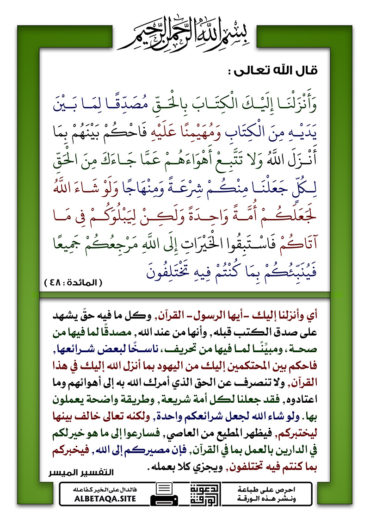 بسم الله الرحمن الرحيم
قال الله تعالى :
وَأَنْزَلْنَا إِلَيْكَ الْكِتَابَ بِالْحَقِّ مُصَدِّقًا لِمَا بَيْنَ
يَدَيْهِ مِنَ الْكِتَابِ وَمُهَيْمِنًا عَلَيْهِ فَاحْكُمْ بَيْنَهُمْ بِمَا
أَنْزَلَ اللَّهُ وَلَا تَتَّبِعْ أَهْوَاءَهُمْ عَمَّا جَاءَكَ مِنَ الْحَقِّ
لِكُلٍّ جَعَلْنَا مِنْكُمْ شِرْعَةً وَمِنْهَاجًا وَلَوْ شَاءَ اللَّهُ
لَجَعَلَكُمْ أُمَّةً وَاحِدَةً وَلَكِنْ لِيَبْلُوَكُمْ فِي مَا
آتَاكُمْ فَاسْتَبِقُوا الْخَيْرَاتِ إِلَى اللَّهِ مَرْجِعُكُمْ جَمِيعًا
فَيُنَبِّئُكُمْ بِمَا كُنْتُمْ فِيهِ تَخْتَلِفُونَ
( المائدة : ٤٨ )
أي وأنزلنا إليك -أيها الرسول- القرآن, وكل ما فيه حقّ يشهد
على صدق الكتب قبله, وأنها من عند الله, مصدقًا لما فيها من
صحة, ومبيِّنًا لما فيها من تحريف, ناسخًا لبعض شرائعها,
فاحكم بين المحتكمين إليك من اليهود بما أنزل الله إليك في هذا
القرآن, ولا تنصرف عن الحق الذي أمرك الله به إلى أهوائهم وما
اعتادوه, فقد جعلنا لكل أمة شريعة, وطريقة واضحة يعملون
بها. ولو شاء الله لجعل شرائعكم واحدة, ولكنه تعالى خالف بينها
ليختبركم, فيظهر المطيع من العاصي, فسارعوا إلى ما هو خير لكم
في الدارين بالعمل بما في القرآن, فإن مصيركم إلى الله, فيخبركم
بما كنتم فيه تختلفون, ويجزي كلا بعمله.
التفسير الميسر
احرص على طباعة
ونشر هذه الورقة
الدعوية
الورقة
فالدال على الخير كفاعله
ALBETAQA.SITE